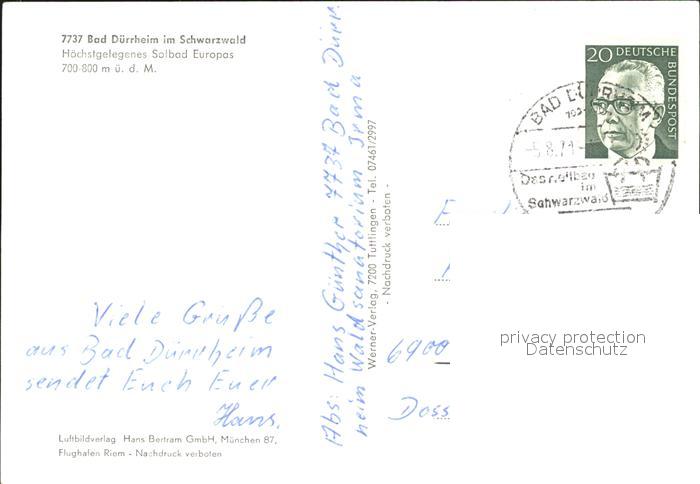 7737 Bad Dürrheim im Schwarzwald
Höchstgelegenes Solbad Europas
700-800 m ü. d. M.
Viele Grüße
aus Bad Dürrheim
sendet Euch Euer
Hans.
Luftbildverlag Hans Bertram GmbH, München 87,
Flughafen Riem - Nachdruck verboten
Abs: Hans Günther 7737 Bad Dürr
heim Waldsanatorium Irma
Werner-Verlag, 7200 Tuttlingen - Tel. 07461/2997
- Nachdruck verboten -
20 DEUTSCHE
BUNDESPOST
BAD DÜRRHEIM
-5.8.71-
im
Schwarzwald
6900
Doss
privacy protection
Datenschutz